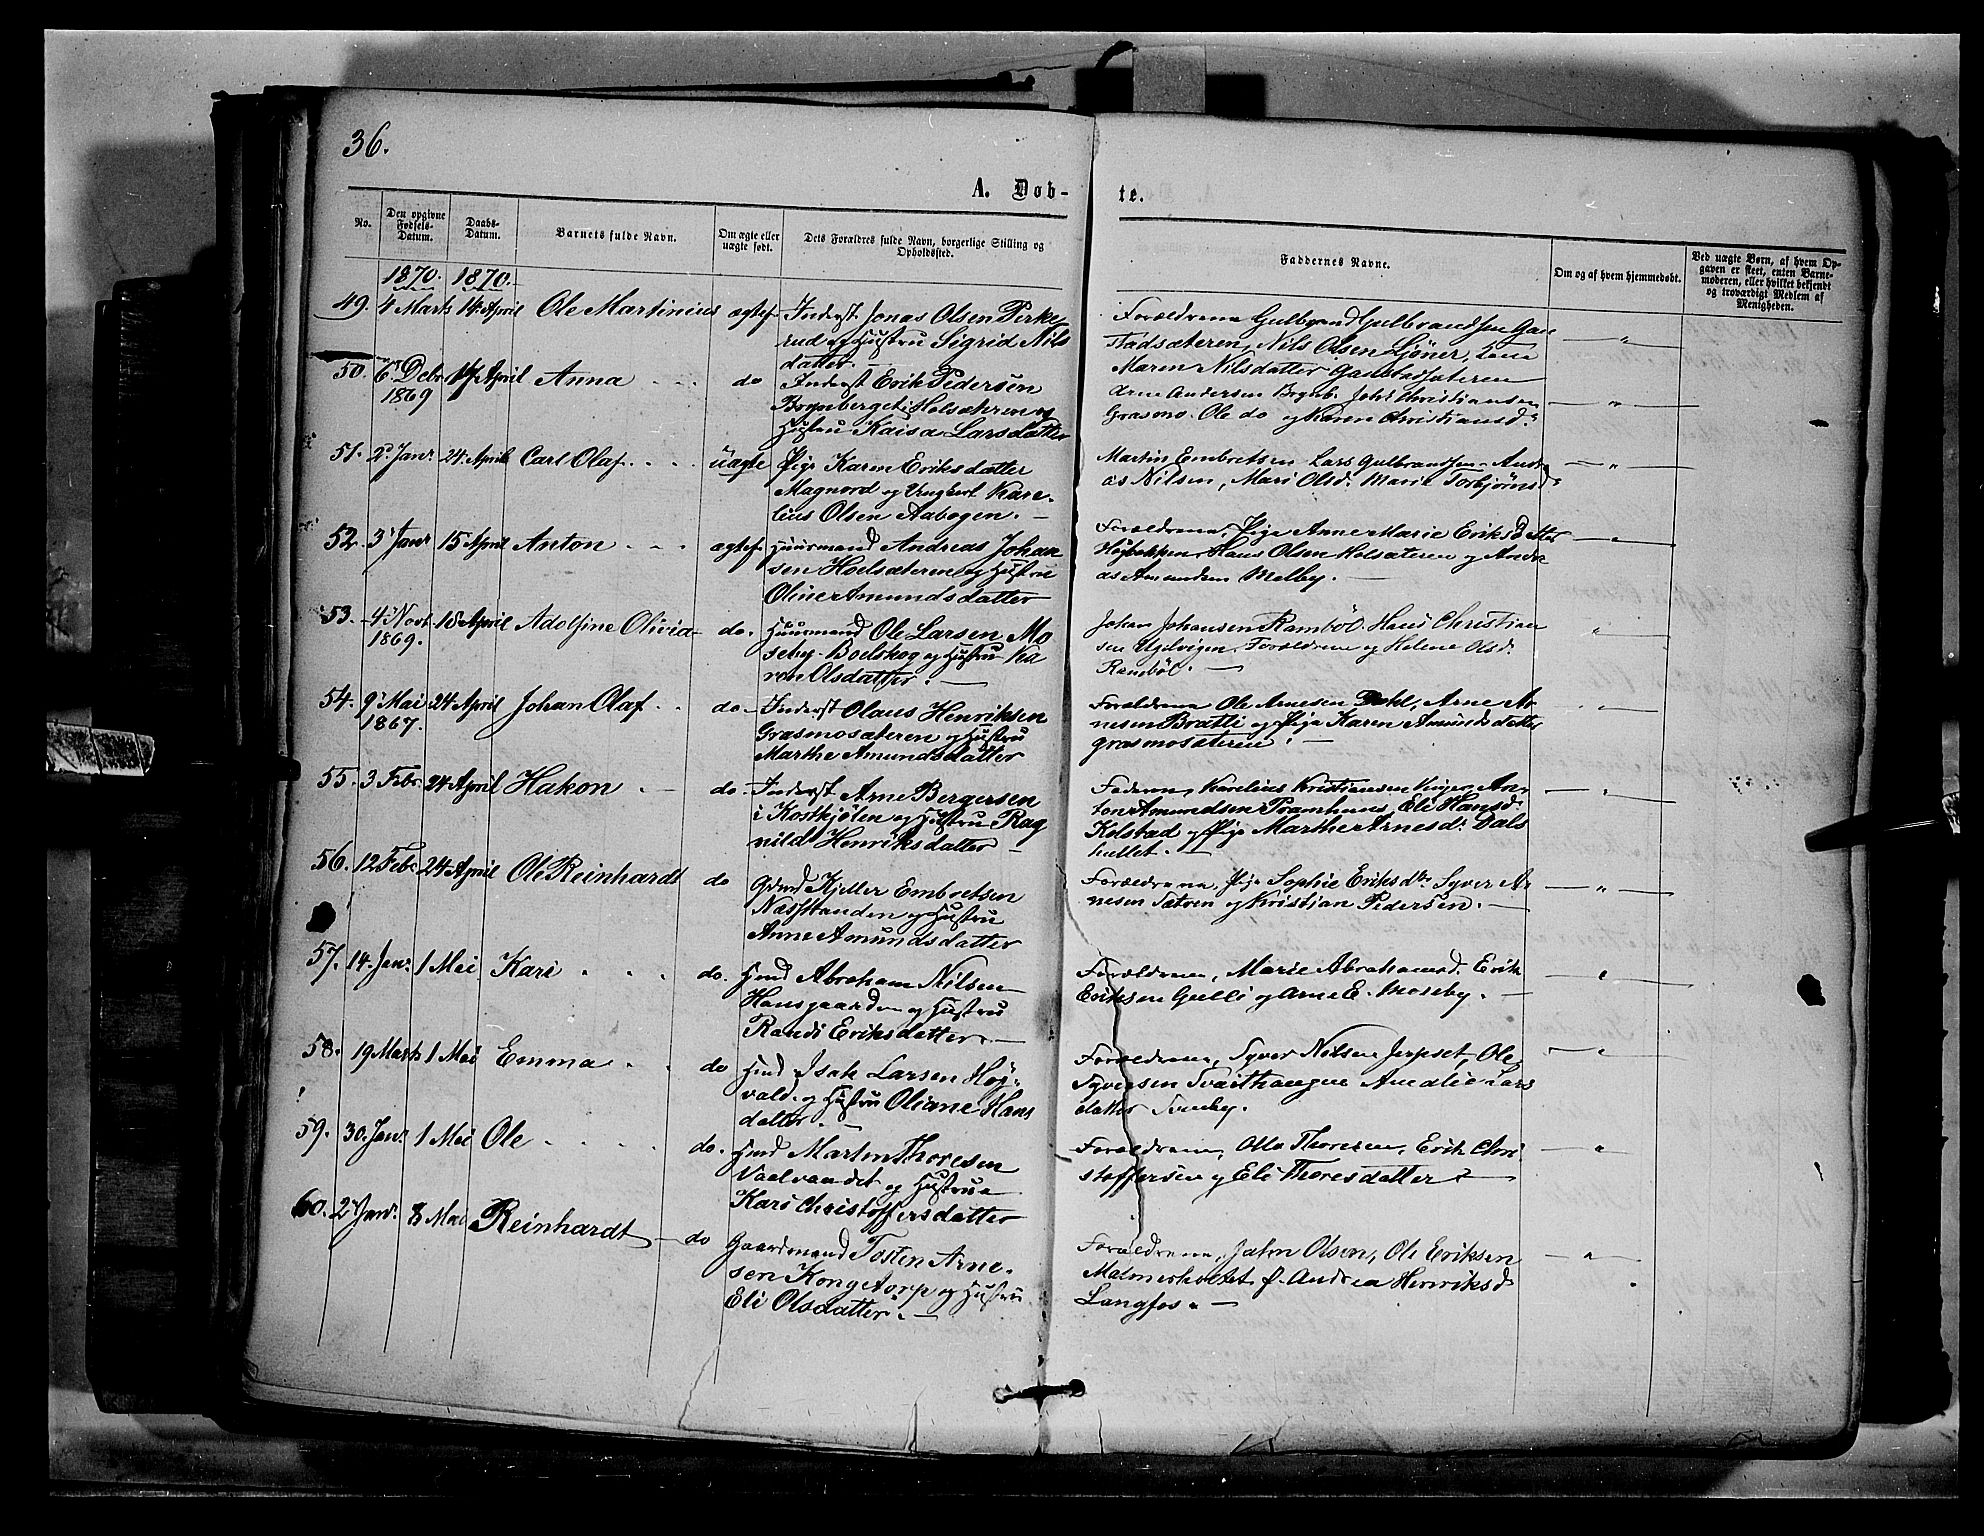 36.
A. Døb-
te.
No.
Den opgivne Fødsels-Datum.
Daabs-Datum.
Barnets fulde Navn.
Om ægte eller uægte født.
Dets Forældres fulde Navn, borgerlige Stilling og Opholdssted.
Faddernes Navne.
Om og af hvem hjemmedøbt.
Ved uægte Børn, af hvem Opgaven er skeet, enten Barnemoderen, eller hvilket bekjendt og troværdigt Medlem af Menigheden.
1870. 1870.
49. 4 Marts 14 April Ole Martinius ægtef Inderst Jonas Olsen Pirke
rud og Hustru Sigrid Nils
datter. —
Forældrene Gulbrand Gulbrandsen Gau
stadsæteren, Nils Olsen Ljøner, Lene
Maren Nilsdatter Gaustadsæteren
50. 6 Debr 17 April Anna do Inderst Erik Pedersen
1869
Brynberget i Holsæteren og
Hustru Kaisa Larsdatter
Arne Andersen Brynb. Johs Christiansen
Grasmo. Ole do og Karen Christiansd.
51. 2 Janr. 24 April Carl Olaf uægte Pige Karen Eriksdatter
Magnord og Ungkarl Kare-
lius Olsen Aabogen. —
Martin Embretsen Lars Gulbrandsen Andr
as Nilsen, Mari Olsd. Marie Torbjørnsd.
52. 3 Janr 15 April Anton ægtef Huusmand Andreas Johan
sen Holsæteren og Hustru
Oline Amundsdatter
Forældrene, Pige Anne Marie Eriksdatter
Høgbakken Hans Olsen Holsæteren og Andre
as Amundsen Melby. —
53. 4 Novb. 18 April Adolfine Olivia do. Huusmand Ole Larsen Mo
1869.
seby Boelskog og Hustru Ka
ren Olsdatter. —
Johan Johansen Rambøl. Hans Christian
sen Forældrene og Helene Olsd.
Rambøl. —
54. 9 Mai 24 April Johan Olaf do Inderst Olaus Henriksen
1867.
Grasmosæteren og Hustru
Marthe Amundsdatter
Forældrene Ole Arnesen Dahl, Arne Ar
nesen Bratli og Pige Karen Amundsdatter
grasmosæteren. —
55. 3 Febr. 24 April Hakon do. Inderst Arne Bergersen
i Kostkjølen og Hustru Rag
nild Henriksdatter
Faderen, Karelius Kristiansen An-
ton Amundsen Pramhuus, Eli Hansd.
Kolstad og Pige Marthe Arnesd. Dals
hullet. —
56. 12 Febr. 24 April Ole Reinhardt do Grmd Kjeller Embretsen
Næsstranden og Hustru
Anne Amundsdatter
Forældrene, Pige Sophie Eriksdtr Syver Ar
nesen Sætren og Kristian Pedersen. —
57. 14 Janr. 1 Mai Kari do. Hmd Abraham Nilsen
Hansgaarden og Hustru
Randi Eriksdatter. —
Forældrene, Marie Abrahamsd. Erik
Eriksen Gulli og Arne E. Moseby. —
58. 19 Marts 1 Mai Emma do Hmd Isak Larsen Høg-
vald. og Hustru Oliane Hans
datter. —
Forældrene, Syver Nilsen Jerpset, Ole
Syversen Svarthaugne Amalie Lars
datter Tomby.
59. 30 Janr. 1 Mai Ole do. Hmd Martin Thoresen
Vaalvandet og Hustrue
Kari Christoffersdatter
Forældrene, Otto Thoresen, Erik Chri
stoffersen og Eli Thoresdatter
60. 2 Janr. 8 Mai Reinhardt do Gaardmand Tosten Arne-
sen Kongetorp og Hustru
Eli Olsdatter. —
Forældrene, John Olsen, Ole Eriksen
Malmerholtet P. Andrea Henriksd
Langfos. —